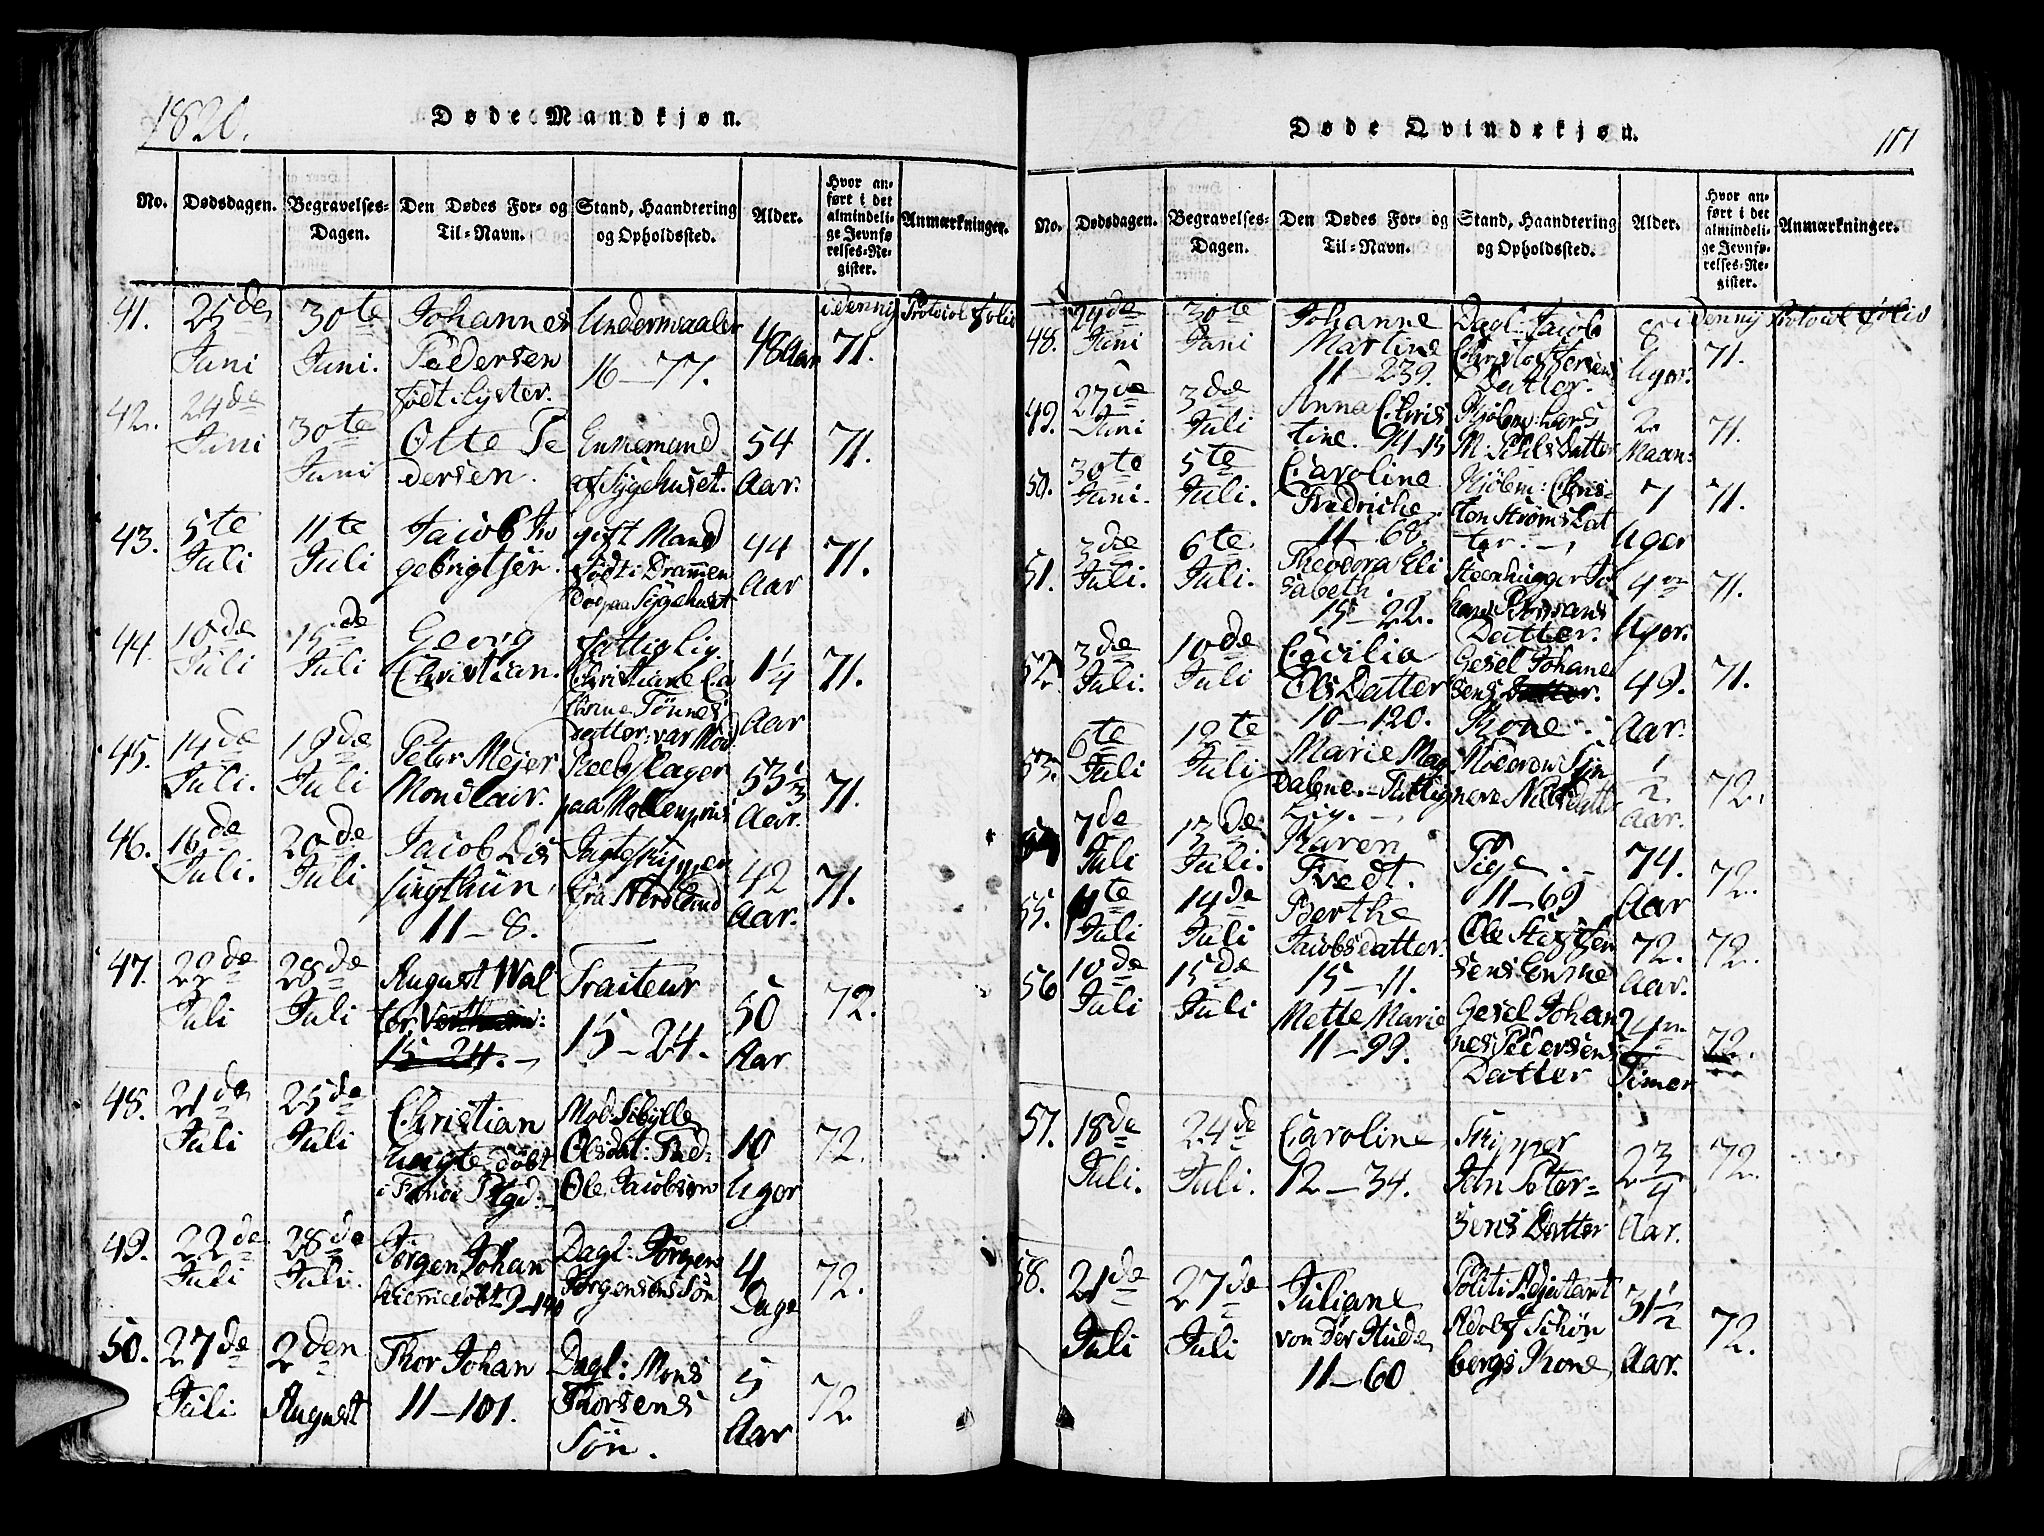 1820.
Døde Mandkjøn.
No. Dødsdagen. Begravelses-Dagen. Den Dødes For- og Til-Navn. Stand, Haandtering og Opholdssted. Alder. Hvor anført i det almindelige Jevnførelses-Register. Anmærkninger.
idenny Protocol Folio
41. 25de Juni 30te Juni. Johannes Pedersen født i Lyster. Undermaaler 16-77. 48 Aar 71.
42. 24de Juni 30te Juni Olte Pedersen. Enkemand af Sygehuset. 54 Aar. 71.
43. 5te Juli 11te Juli Jacob Ingebrigtsen. gift Mand født i Drammen Død paa Sygehuset 44 Aar 71.
44. 10de Juli 15de Juli Georg Christian. Fattiglig. Christiane Ca Tønnes Datter, var Mod. 1 1/4 Aar 71.
45. 14de Juli. 19de Juli Peter Mejer Mondlair. Reebslager paa Møllenpriis 53 1/3 Aar. 71.
46. 16de Juli. 20de Juli Jacob Dis 11-8. Jægteskipper fra Nordland 42 Aar. 71.
47. 22de Juli 28de Juli August Walter 15-24. Traiteur 15-24. 50 Aar 72.
48. 21de Juli 25de Juli Christian døbt i Mod. Sibylle Olsdat: Fad- Ole Jacobsen 10 Uger 72.
49. 22de Juli 28de Juli. Jørgen Johan hiemedøbt 9-140 Dagl: Jørgen Jørgensens Søn 4 Dage 72.
50. 27de Juli 2den August Thor Johan 11-101. Dagl: Mons Thorsens Søn. 5 Aar 72.
Døde Qvindekjøn.
151
No. Dødsdagen. Begravelses-Dagen. Den Dødes For- og Til-Navn. Stand, Haandtering og Opholdssted. Alder. Hvor anført i det almindelige Jevnførelses-Register. Anmærkninger.
idenny Protocol Folio
48. 24de Juni 30te Juni Johanne Martine 11-239. Dagl: Jacob Christoffersens Datter. 8 Uger. 71.
49. 27de Juni 3de Juli Anna Christine. 94-15 Kjøbm: Lars M. Pihls Datter 2 Maan: 71.
50. 30te Juni. 5te Juli. Caroline Fredriche 11-68. Kjøbm: Christen Strøms Datter. 7 Uger 71.
51. 3de Juli. 6te Juli. Theodora Elisabeth. 15-22. Steenhugger Johan Datter. 4 Uger. 71.
52. 3de Juli. 10de Juli Cecilia Ols Datter 10-120. Gesel Johanesens Kone. 49. Aar. 71.
53. 6te Juli 12te Juli Marie Magdalene. Fattiglig. Moderen Nilsdatt 1/2 Aar. 72.
7de Juli 13de Juli. Karen Tvedt. Pige. 11-69 74. Aar 72.
55. 11te Juli 14de Juli Berthe Jacobsdatter. 15-11. Ole Steffensens Enke 72. Aar. 72.
56 10de Juli 15de Juli Mette Marie 11-99. Gesel Johannes Pedersens Datter 24 Timer 72.
57. 18de Juli. 24de Juli. Caroline 12-34. Skipper John Petersens Datter 2 3/4 Aar. 72.
58. 21de Juli 27de Juli Juliane von der Hude 11-60 Politi Adjutant Adolf Schønbergs Kone 31 1/2 Aar. 72.